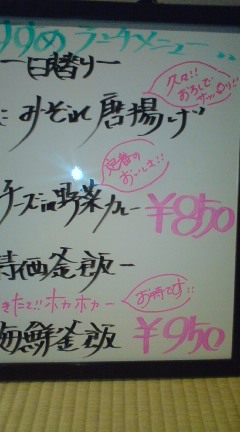 ランチメニュー
ー日替りー
久々!!
おろしで
サッパリ!!
みぞれ唐揚げ
定番の
おいしさ!!
チーズin野菜カレー ¥850
特価釜飯ー
きたて!!ホカホカー
お得です!!
海鮮釜飯 ¥950